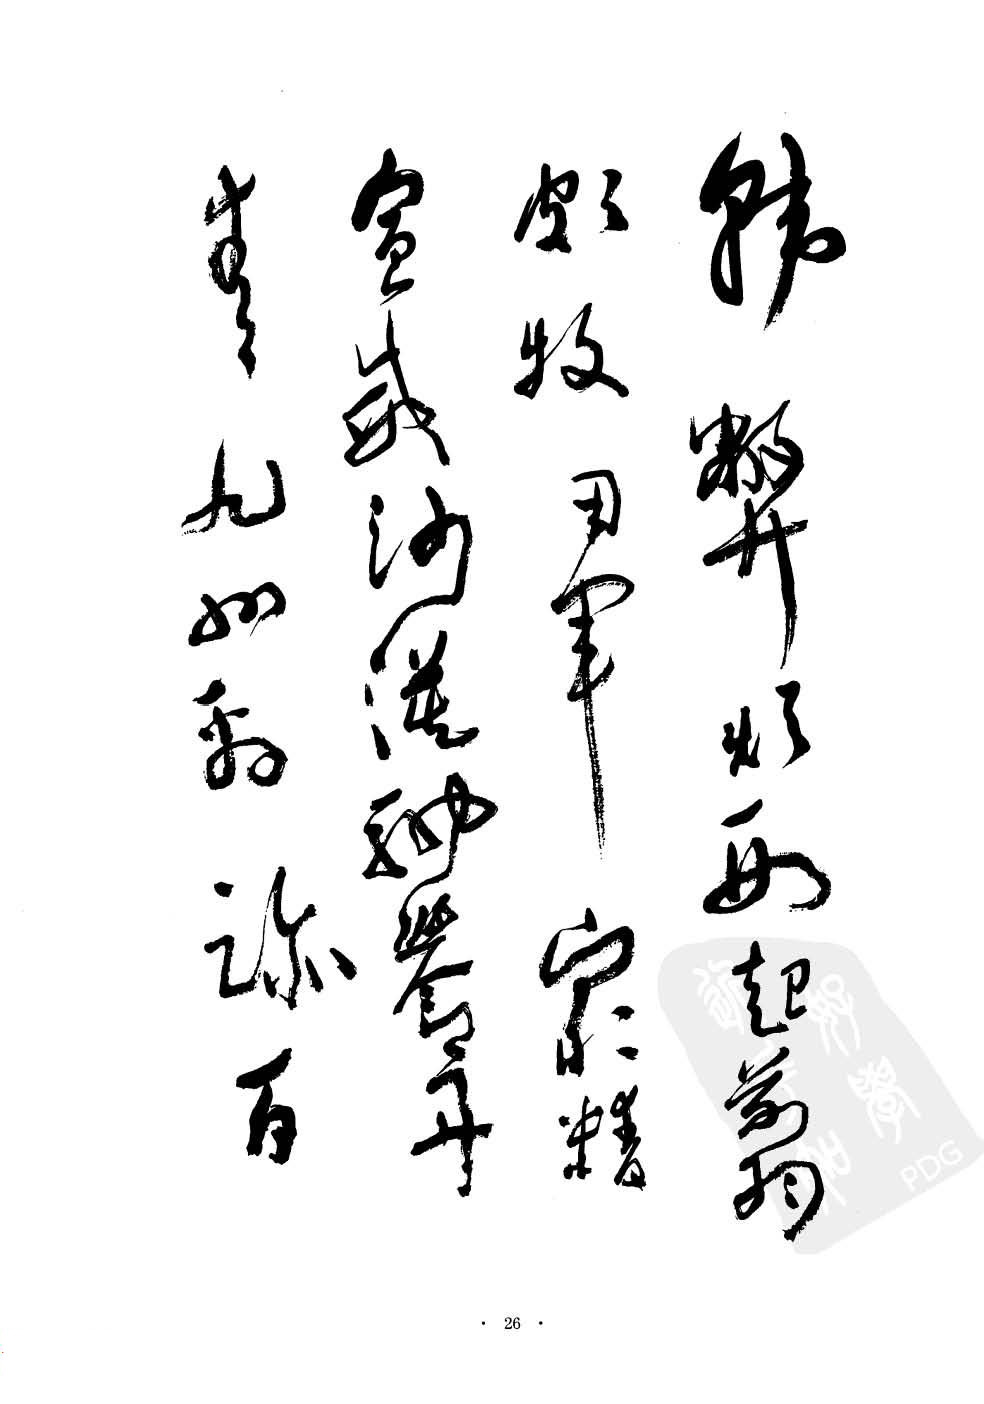 韩弊烦刑起翦
颇牧用军最精
宣威沙漠驰誉丹
青九州禹迹百
· 26 ·
PDG